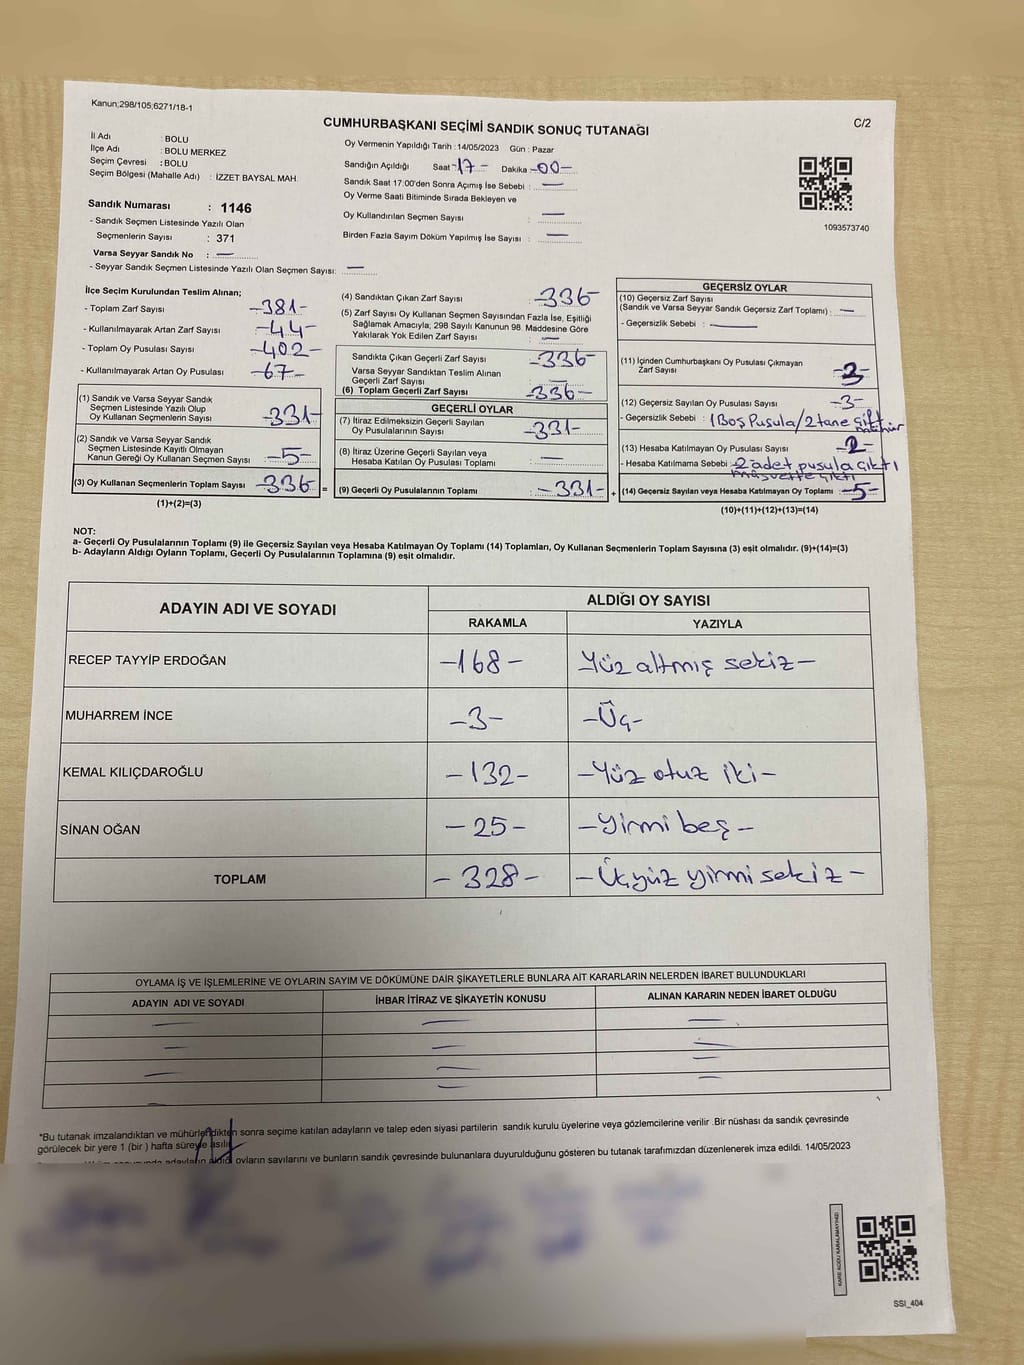 Kanun;298/105;6271/18-1
CUMHURBAŞKANI SEÇİMİ SANDIK SONUÇ TUTANAĞI
C/2
İl Adı : BOLU
İlçe Adı : BOLU MERKEZ
Seçim Çevresi : BOLU
Seçim Bölgesi (Mahalle Adı) : İZZET BAYSAL MAH.
Sandık Numarası : 1146
- Sandık Seçmen Listesinde Yazılı Olan
Seçmenlerin Sayısı : 371
Varsa Seyyar Sandık No : —
- Seyyar Sandık Seçmen Listesinde Yazılı Olan Seçmen Sayısı: —
Oy Vermenin Yapıldığı Tarih : 14/05/2023 Gün : Pazar
Sandığın Açıldığı Saat -17- Dakika -00-
Sandık Saat 17:00'den Sonra Açımış İse Sebebi : —
Oy Verme Saati Bitiminde Sırada Bekleyen ve
Oy Kullandırılan Seçmen Sayısı : —
Birden Fazla Sayım Döküm Yapılmış İse Sayısı : —
1093573740
İlçe Seçim Kurulundan Teslim Alınan;
- Toplam Zarf Sayısı -381-
- Kullanılmayarak Artan Zarf Sayısı -44-
- Toplam Oy Pusulası Sayısı -402-
- Kullanılmayarak Artan Oy Pusulası -67-
(1) Sandık ve Varsa Seyyar Sandık
Seçmen Listesinde Yazılı Olup
Oy Kullanan Seçmenlerin Sayısı -331-
(2) Sandık ve Varsa Seyyar Sandık
Seçmen Listesinde Kayıtlı Olmayan
Kanun Gereği Oy Kullanan Seçmen Sayısı -5-
(3) Oy Kullanan Seçmenlerin Toplam Sayısı -336-
(1)+(2)=(3)
=
(4) Sandıktan Çıkan Zarf Sayısı -336-
(5) Zarf Sayısı Oy Kullanan Seçmen Sayısından Fazla İse, Eşitliği
Sağlamak Amacıyla; 298 Sayılı Kanunun 98. Maddesine Göre
Yakılarak Yok Edilen Zarf Sayısı : —
Sandıkta Çıkan Geçerli Zarf Sayısı -336-
Varsa Seyyar Sandıktan Teslim Alınan
Geçerli Zarf Sayısı —
(6) Toplam Geçerli Zarf Sayısı -336-
GEÇERLİ OYLAR
(7) İtiraz Edilmeksizin Geçerli Sayılan
Oy Pusulalarının Sayısı -331-
(8) İtiraz Üzerine Geçerli Sayılan veya
Hesaba Katılan Oy Pusulası Toplamı —
(9) Geçerli Oy Pusulalarının Toplamı -331-
+
GEÇERSİZ OYLAR
(10) Geçersiz Zarf Sayısı
(Sandık ve Varsa Seyyar Sandık Geçersiz Zarf Toplamı) : —
- Geçersizlik Sebebi : —
(11) İçinden Cumhurbaşkanı Oy Pusulası Çıkmayan
Zarf Sayısı
(12) Geçersiz Sayılan Oy Pusulası Sayısı -3-
- Geçersizlik Sebebi : 1 Boş Pusula/2 tane çift
mühür
(13) Hesaba Katılmayan Oy Pusulası Sayısı
- Hesaba Katılmama Sebebi 2 adet pusula çıktı
(14) Geçersiz Sayılan veya Hesaba Katılmayan Oy Toplamı -5-
(10)+(11)+(12)+(13)=(14)
NOT:
a- Geçerli Oy Pusulalarının Toplamı (9) ile Geçersiz Sayılan veya Hesaba Katılmayan Oy Toplamı (14) Toplamları, Oy Kullanan Seçmenlerin Toplam Sayısına (3) eşit olmalıdır. (9)+(14)=(3)
b- Adayların Aldığı Oyların Toplamı, Geçerli Oy Pusulalarının Toplamına (9) eşit olmalıdır.
ADAYIN ADI VE SOYADI ALDIĞI OY SAYISI
RAKAMLA YAZIYLA
RECEP TAYYİP ERDOĞAN -168- Yüz altmış sekiz-
MUHARREM İNCE -3- -Üç-
KEMAL KILIÇDAROĞLU -132- -Yüz otuz iki-
SİNAN OĞAN -25- -Yirmi beş-
TOPLAM -328- -Üçyüz yirmi sekiz-
OYLAMA İŞ VE İŞLEMLERİNE VE OYLARIN SAYIM VE DÖKÜMÜNE DAİR ŞİKAYETLERLE BUNLARA AİT KARARLARIN NELERDEN İBARET BULUNDUKLARI
ADAYIN ADI VE SOYADI İHBAR İTİRAZ VE ŞİKAYETİN KONUSU ALINAN KARARIN NEDEN İBARET OLDUĞU
*Bu tutanak imzalandıktan ve mühürlendikten sonra seçime katılan adayların ve talep eden siyasi partilerin sandık kurulu üyelerine veya gözlemcilerine verilir. Bir nüshası da sandık çevresinde
görülecek bir yere 1 (bir) hafta süreyle asılır.
adayların aldığı oyların sayılarını ve bunların sandık çevresinde bulunanlara duyurulduğunu gösteren bu tutanak tarafımızdan düzenlenerek imza edildi. 14/05/2023
KARE KODU KARALAMAYINIZ!
SSI_404